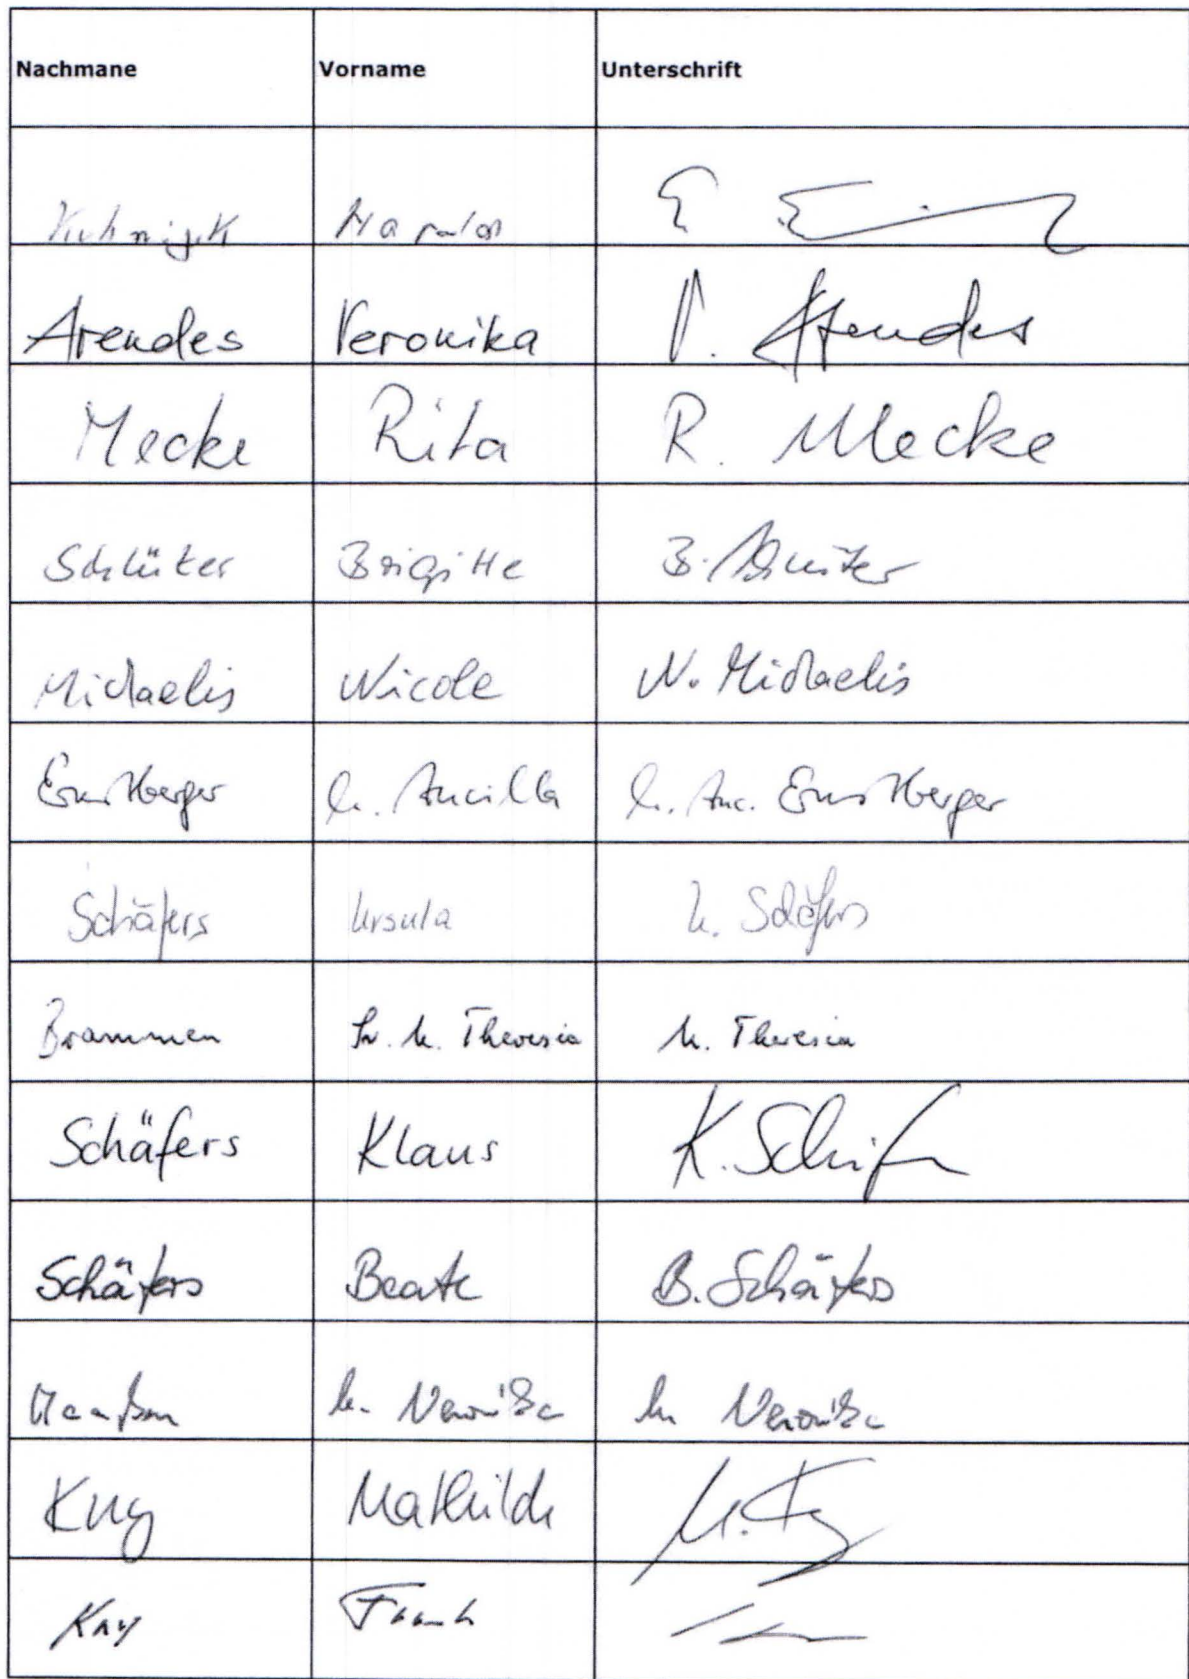 Nachmane Vorname Unterschrift
Harald
Arendes Veronika V. Arendes
Mecke Rita R. Mecke
Schlüter Brigitte B. Schlüter
Michaelis Nicole N. Michaelis
Ernstberger M. Ancilla M. Anc. Ernstberger
Schäfers Ursula U. Schäfers
Brammen Sr. M. Theresia M. Theresia
Schäfers Klaus K. Schäfers
Schäfers Beate B. Schäfers
M. Veronika M. Veronika
Mathilde
Frank